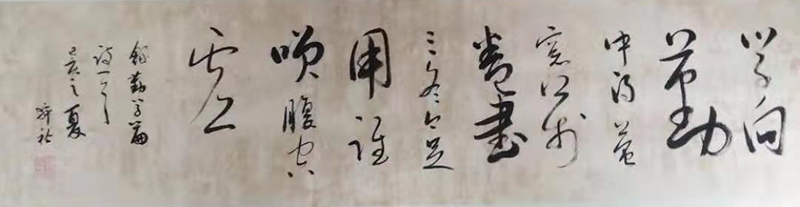 学向
勤
中得萤
窗万
卷書
三冬今足
用谁
咲腹空
虚
録勤学篇
诗一首
己亥之夏